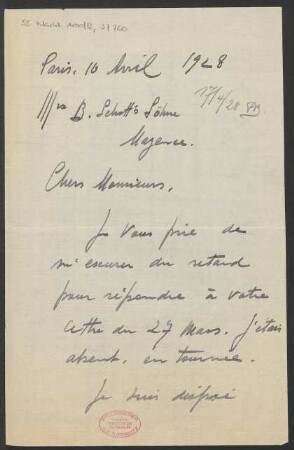 Paris, 10 Avril 1928
17/4/28
B. Schott's Söhne
Mayence.
Chers Messieurs,
Je vous prie de
m'excuser du retard
pour répondre à votre
lettre du 27 Mars. J'étais
absent, en tournée.
Je suis disposé